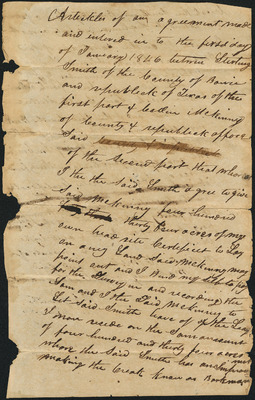 Artickles of an agreement made
and entered in to the first day
of January 1846 between
Smith of the County of Bowie
and republick of Texas of the
first part & Collin McKinney
of County & republick aforce
Said
of the second part that whereas
I the the Said Smith agree to give
Said McKinney four hundred
thirty four acres of my
own head rite Certificet to Lay
on any Land Said McKinney may
point out and I bind my self to pay
for the and recording the
Sam and I the Said McKinney to
Let Said Smith have of the Land
I now reside on the Sam amount
of four hundred and thirty four acres
where the Said Smith has an
making the Creek known as